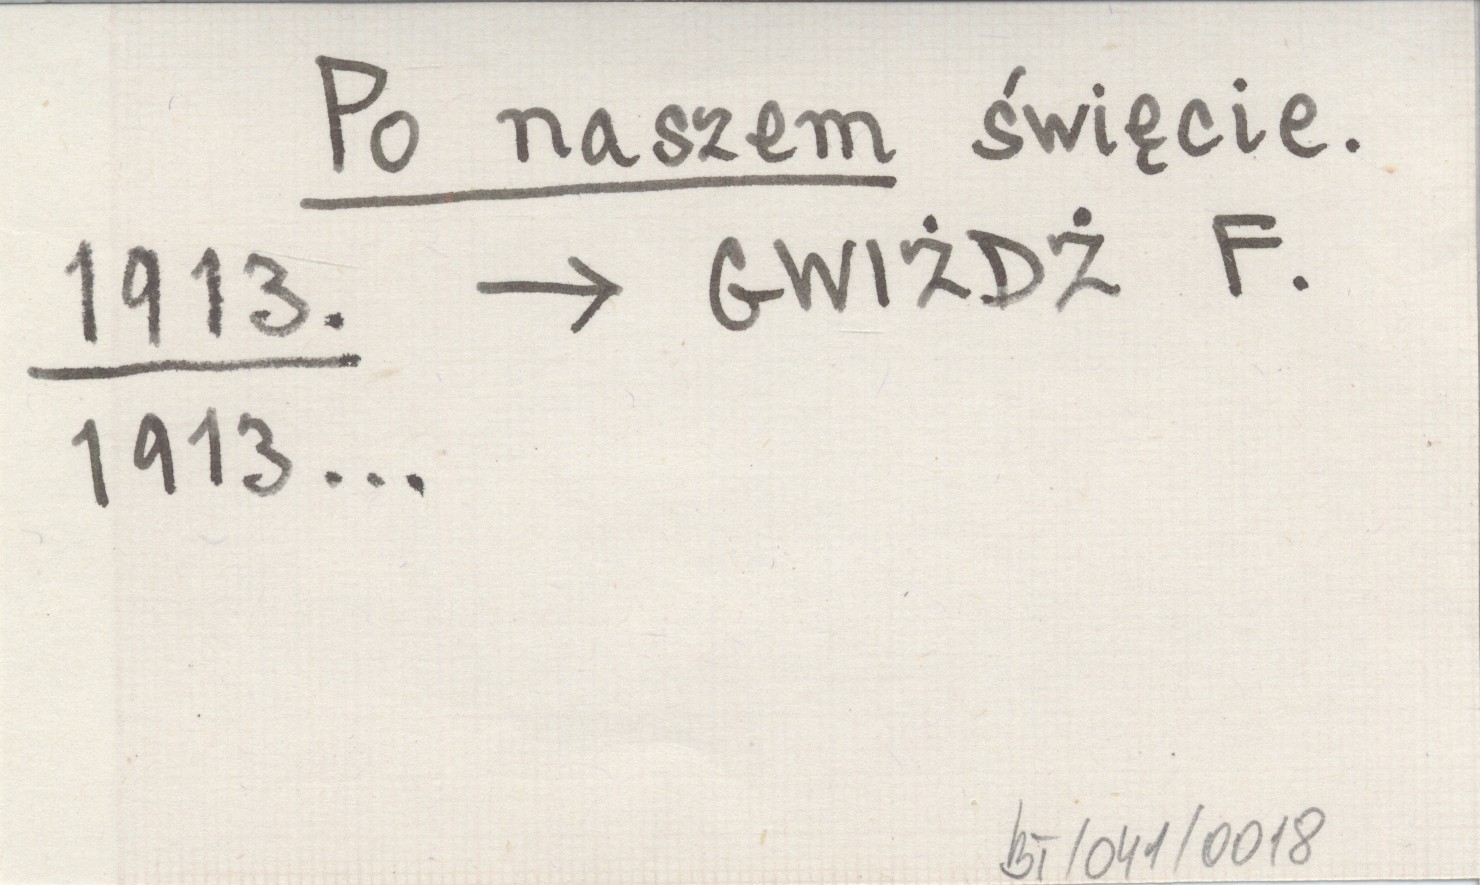 Po naszem święcie.
1913. → GWIŻDŻ F.
1913...
BT/041/0018